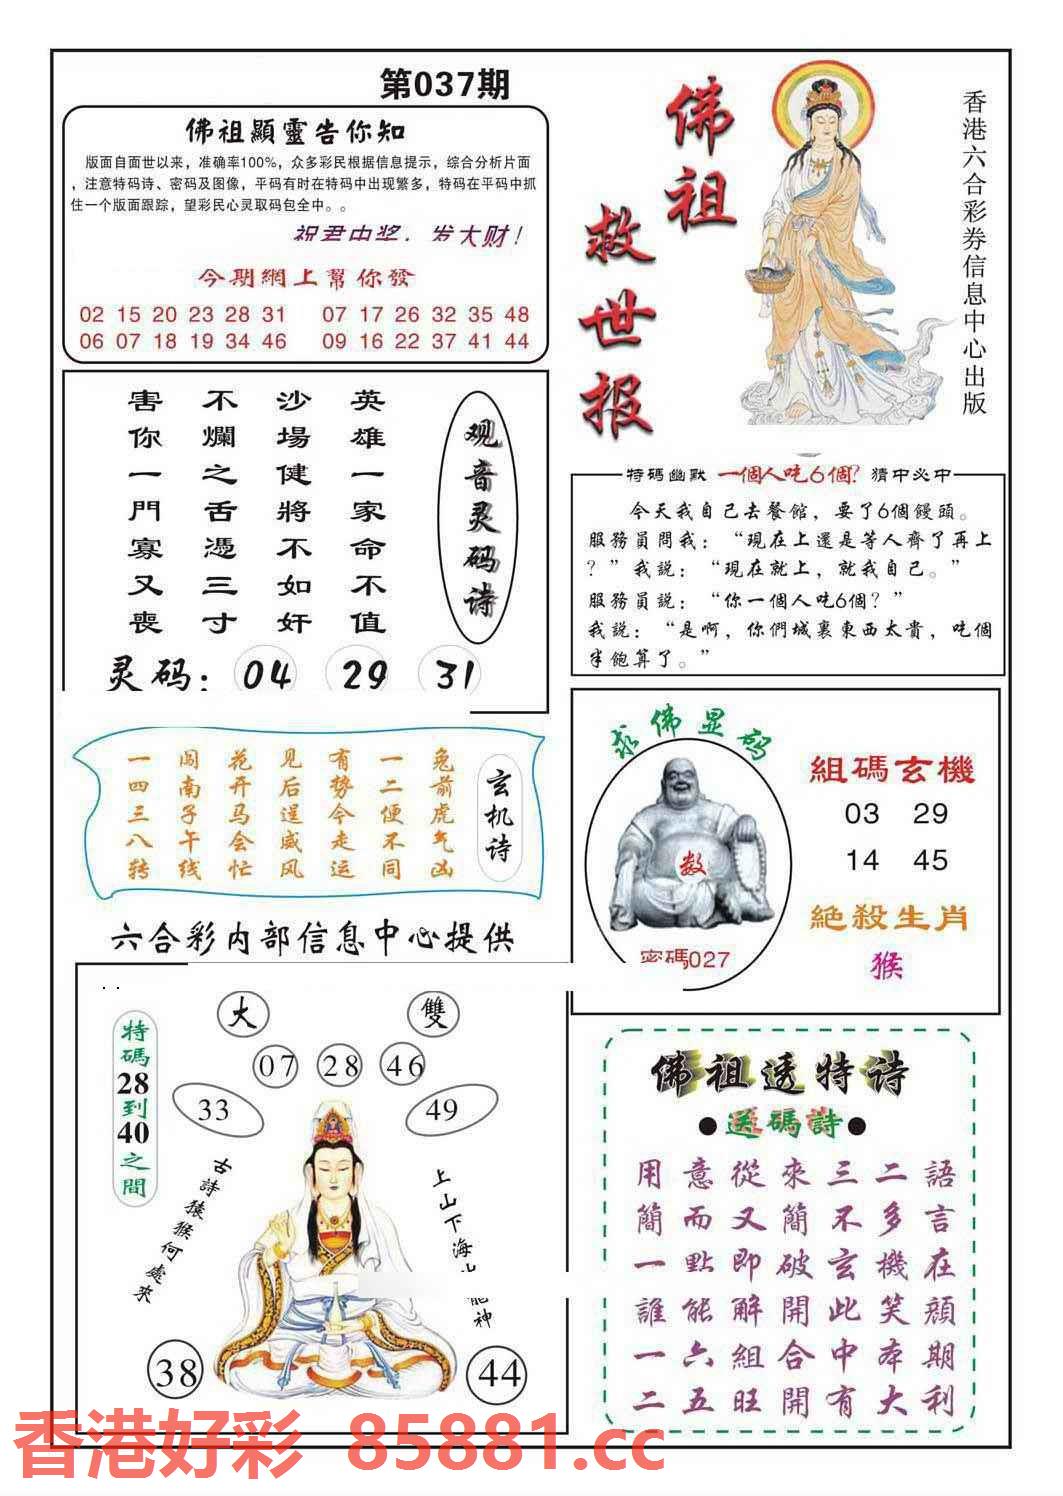 第037期
佛祖顯靈告你知
版面自面世以来，准确率100%，众多彩民根据信息提示，综合分析片面
，注意特码诗、密码及图像，平码有时在特码中出现繁多，特码在平码中抓
住一个版面跟踪，望彩民心灵取码包全中。。
祝君中奖，发大财！
今期網上幫你發
02 15 20 23 28 31 07 17 26 32 35 48
06 07 18 19 34 46 09 16 22 37 41 44
佛祖
救世报
香港六合彩券信息中心出版
观音灵码诗
英雄一家命不值
沙場健將不如奸
不爛之舌憑三寸
害你一門寡又喪
灵码：04 29 31
特碼幽默 一個人吃6個？ 猜中必中
今天我自己去餐館，要了6個饅頭。
服務員問我：“現在上還是等人齊了再上
？”我説：“現在就上，就我自己。”
服務員説：“你一個人吃6個？”
我説：“是啊，你們城裏東西太貴，吃個
半飽算了。”
玄机诗
兔前虎气凶
一二便不同
有势今走运
见后逞威风
花开马会忙
闯南子午线
一四三八转
六合彩内部信息中心提供
求佛显码
数
密碼027
組碼玄機
03 29
14 45
絕殺生肖
猴
大 雙
07 28 46
33 49
特碼28到40之間
古詩猿猴何處來
上山下海
神
38 44
佛祖透特诗
●送碼詩●
用意從來三二語
簡而又簡不多言
一點即破玄機在
誰能解開此笑顔
一六組合中本期
二五旺開有大利
香港好彩 85881.cc